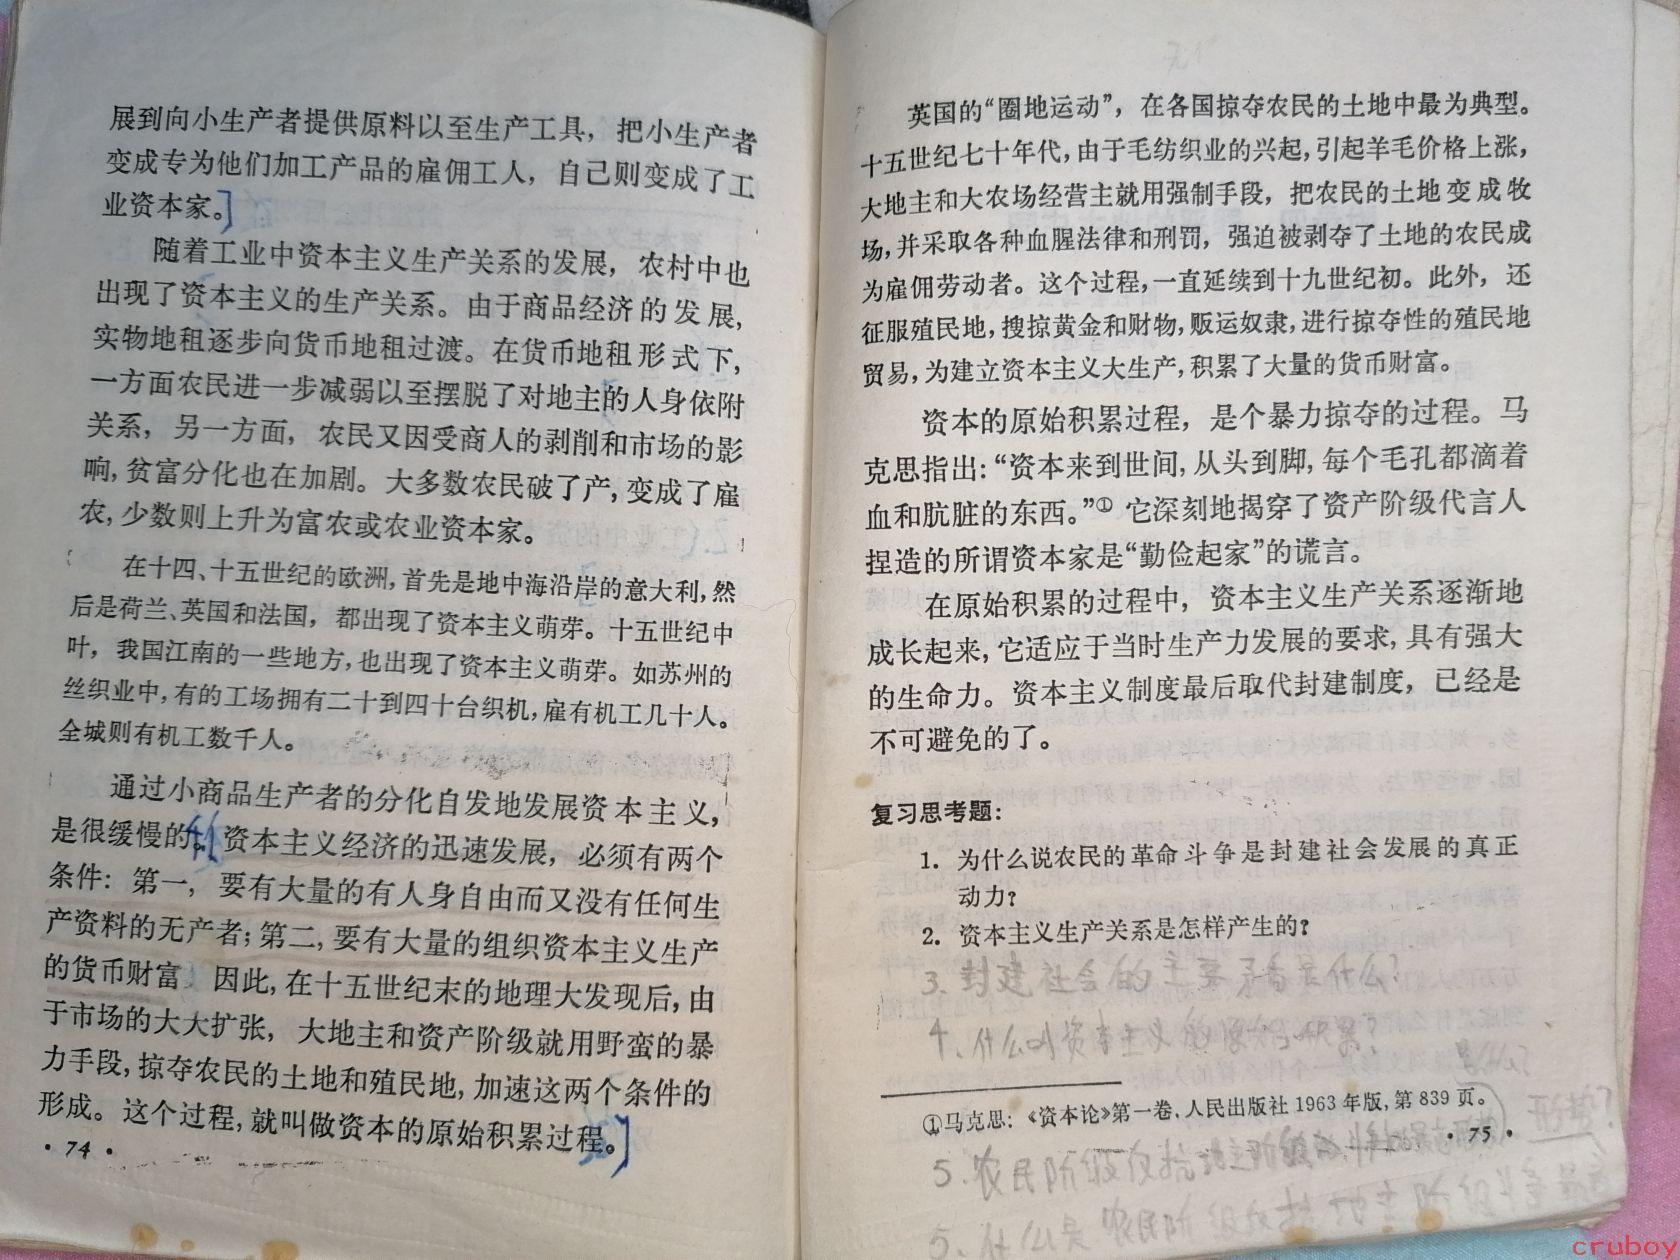 展到向小生产者提供原料以至生产工具，把小生产者
变成专为他们加工产品的雇佣工人，自己则变成了工
业资本家。]
随着工业中资本主义生产关系的发展，农村中也
出现了资本主义的生产关系。由于商品经济的发展，
实物地租逐步向货币地租过渡。在货币地租形式下，
一方面农民进一步减弱以至摆脱了对地主的人身依附
关系，另一方面，农民又因受商人的剥削和市场的影
响，贫富分化也在加剧。大多数农民破了产，变成了雇
农，少数则上升为富农或农业资本家。
在十四、十五世纪的欧洲，首先是地中海沿岸的意大利，然
后是荷兰、英国和法国，都出现了资本主义萌芽。十五世纪中
叶，我国江南的一些地方，也出现了资本主义萌芽。如苏州的
丝织业中，有的工场拥有二十到四十台织机，雇有机工几十人。
全城则有机工数千人。
通过小商品生产者的分化自发地发展资本主义，
是很缓慢的。资本主义经济的迅速发展，必须有两个
条件：第一，要有大量的有人身自由而又没有任何生
产资料的无产者；第二，要有大量的组织资本主义生产
的货币财富 因此，在十五世纪末的地理大发现后，由
于市场的大大扩张，大地主和资产阶级就用野蛮的暴
力手段，掠夺农民的土地和殖民地，加速这两个条件的
形成。这个过程，就叫做资本的原始积累过程。]
· 74 ·
英国的“圈地运动”，在各国掠夺农民的土地中最为典型。
十五世纪七十年代，由于毛纺织业的兴起，引起羊毛价格上涨，
大地主和大农场经营主就用强制手段，把农民的土地变成牧
场，并采取各种血腥法律和刑罚，强迫被剥夺了土地的农民成
为雇佣劳动者。这个过程，一直延续到十九世纪初。此外，还
征服殖民地，搜掠黄金和财物，贩运奴隶，进行掠夺性的殖民地
贸易，为建立资本主义大生产，积累了大量的货币财富。
资本的原始积累过程，是个暴力掠夺的过程。马
克思指出：“资本来到世间，从头到脚，每个毛孔都滴着
血和肮脏的东西。”① 它深刻地揭穿了资产阶级代言人
捏造的所谓资本家是“勤俭起家”的谎言。
在原始积累的过程中，资本主义生产关系逐渐地
成长起来，它适应于当时生产力发展的要求，具有强大
的生命力。资本主义制度最后取代封建制度，已经是
不可避免的了。
复习思考题：
1. 为什么说农民的革命斗争是封建社会发展的真正
动力？
2. 资本主义生产关系是怎样产生的？
3. 封建社会的主要矛盾是什么？
4. 什么叫资本主义的原始积累？
①马克思：《资本论》第一卷，人民出版社1963年版，第839页。
· 75 ·
形势？
5. 农民阶级反抗地主阶级的斗争的
5. 什么是农民阶级反抗地主阶级斗争最
cruboy